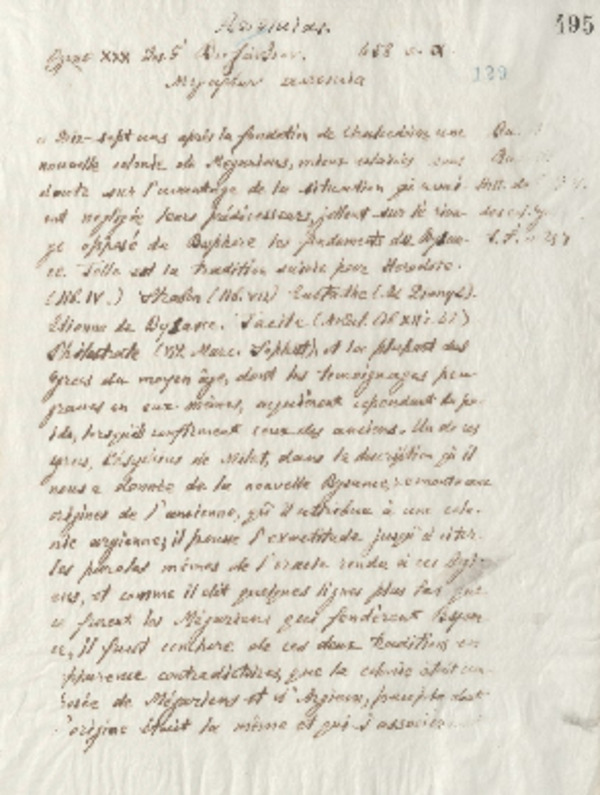 495
129
« Dix-sept ans après la fondation de Chalcédoine, une
nouvelle colonie de Mégariens, mieux éclairés sans
doute sur l'avantage de la situation qu'avai
ent négligée leurs prédécesseurs, jettent sur le riva-
ge opposé du Bosphore les fondements de Bysan-
ce. Telle est la tradition suivie par Herodote.
(lib. IV.) Strabon (lib. VII) Eustathe (Ad Dionys).
Etienne de Bysance. Tacite (Annal. lib XII
Philostrate (Vit. Marc. Sophist), et la plupart des
grecs du moyen âge, dont les temoignages peu
graves en eux-mêmes, acquièrent cependant du po-
ids, lorsqu'ils confirment ceux des anciens. Un de ces
grecs, Hésychius de Milet, dans la description qu'il
nous a donnée de la nouvelle Bysance, remonte aux
origines de l'ancienne, qu'il attribue à une colo-
nie argienne; il pousse l'exactitude jusqu'à citer
les paroles mêmes de l'oracle rendu à ces Argi-
ens, et comme il dit quelques lignes plus bas que
ce furent les Mégariens qui fondèrent Bysan
ce, il faut conclure de ces deux traditions en
apparence contradictoires, que la colonie était com
posée de Mégariens et d'Argiens, peuples dont
l'origine était la même et qui s'associer